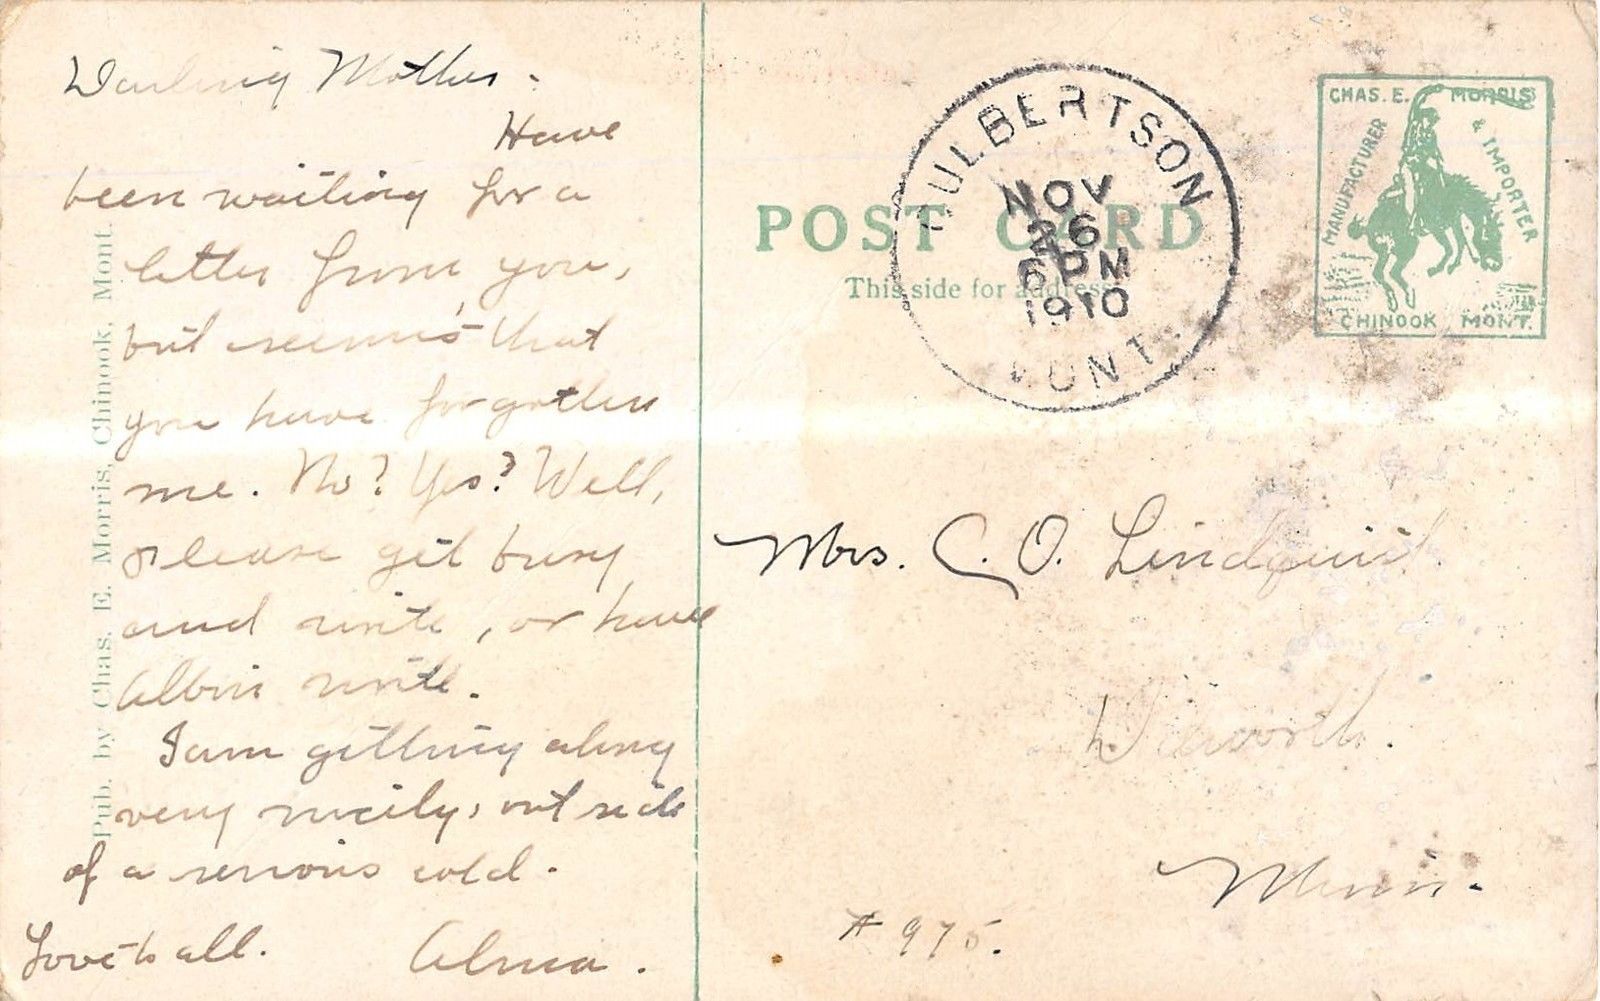 Darling Mother -
Have
been waiting for a
letter from you,
but seems that
you have forgotten
me. No? Yes? Well,
please get busy
and write, or have
Albin write.
I am getting along
very nicely, outside
of a serious cold.
Love to all. Alma.
Pub. by Chas. E. Morris, Chinook, Mont.
POST CARD
This side for address
CULBERTSON
NOV
26
6 PM
1910
MONT.
CHAS. E. MORRIS
MANUFACTURER & IMPORTER
CHINOOK MONT.
Mrs. C. O. Lindquist.
Minn.
# 975.